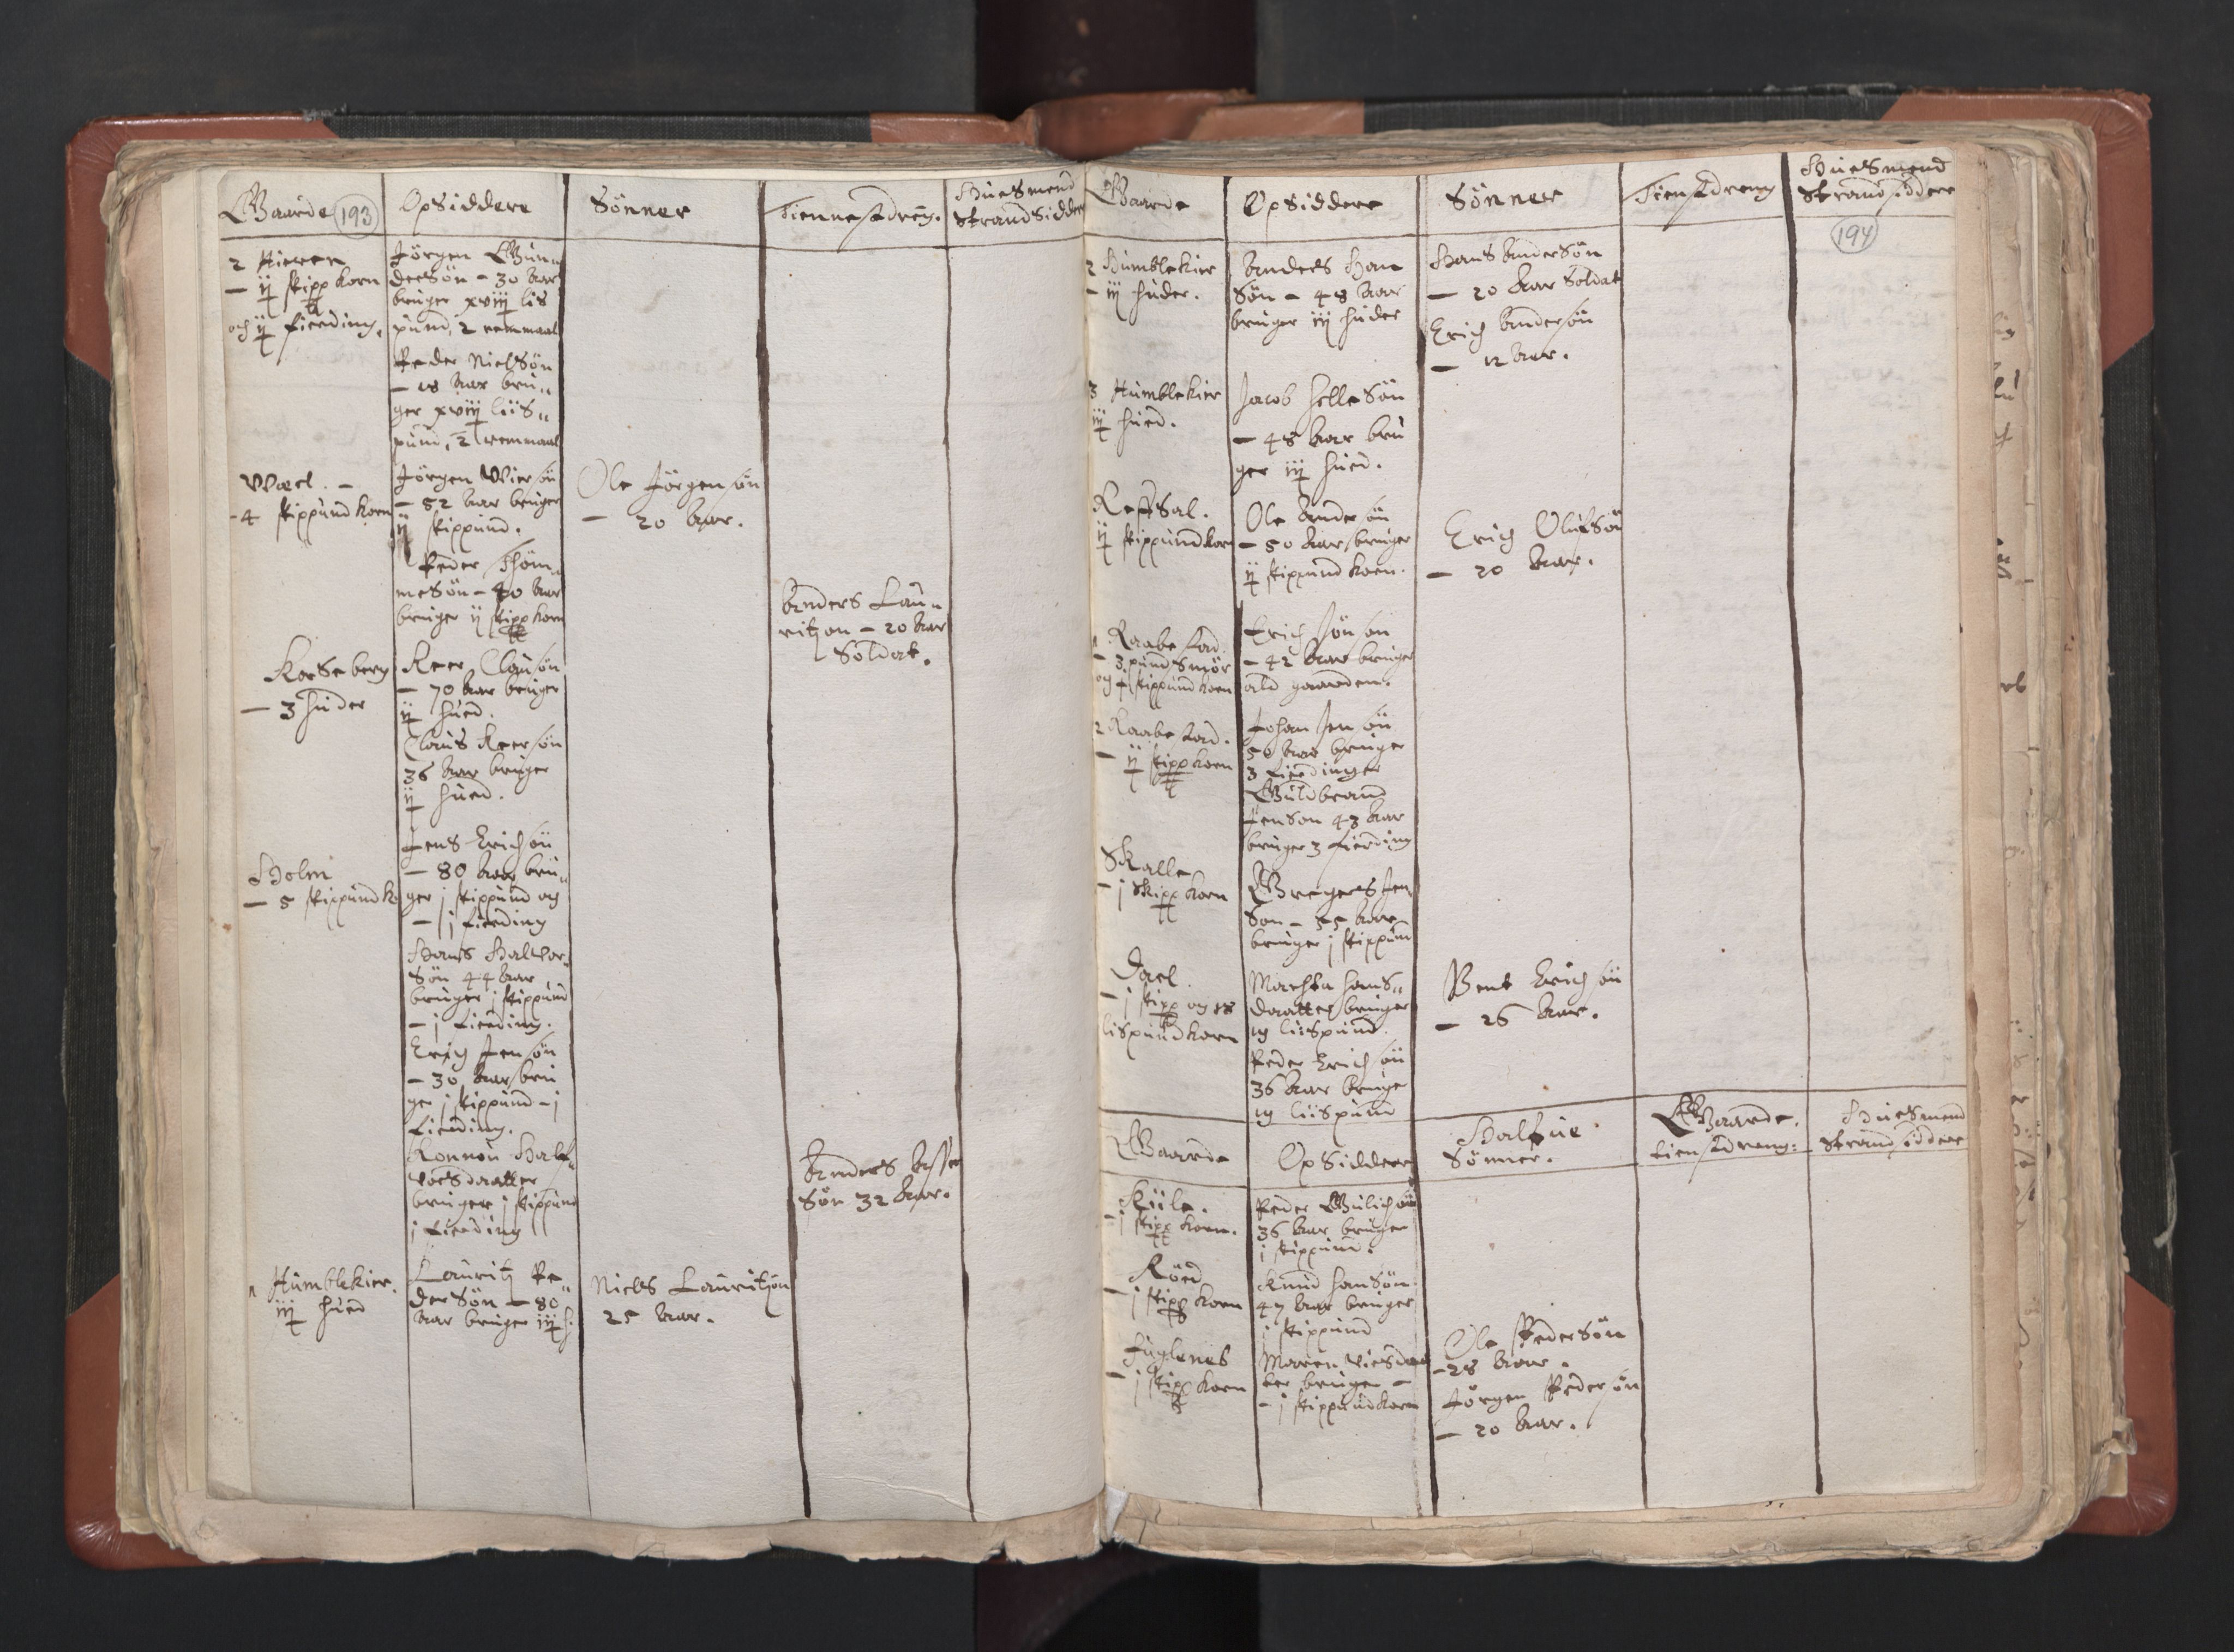 Gaarde 193 Opsiddere Sönner Tiennestdreng. Huusmend
Strandsidder
2 Kieren
– ij skipp korn
och ij fierding.
Jörgen Gun„
dersön – 30 Aar
bruger xviij lis
pund, 2 remmaal
Peder Nielsön
– 48 Aar bru„
ger xviij liis„
pund, 2 remmaal
Wæel. –
-4 skippund korn
Jörgen Wiersön
– 52 Aar bruger
ij skippund.
Ole Jörgensön
– 20 Aar.
Peder Thom„
mesön – 40 Aar
bruger ij skipp korn
Anders Lau„
ritzon – 20 Aar
Soldat.
Korseberg
– 3 huder
Reer Clausön
– 70 Aar bruger
ij hued.
Claus Reersön
36 Aar bruger
ij hued.
Holm
– 5 skippund ko
Jens Erichsön
– 80 Aar bru„
ger j skippund og
– j fierding
Hans Halvor„
sön 44 Aar
bruger j skippund
– j fierding.
Erich Jensön
– 30 Aar bru
ger j skippund – j
fierding.
Konnou Half„
vorsdaatter
bruger j skippund
j fierding
Anders Asser
sön 32 Aar.
1 Humblekier.
iij hued
Lauritz Pe„
dersön – 80
Aar bruger iij h.
Niels Lauritzön
25 Aar.
Gaarde Opsiddere Sönner Tienstdreng Huusmend
Strandsiddere
194
2 Humblekier
– iij huder.
Anders Han
sön – 48 Aar
bruger iij huder
Hans Andersön
– 20 Aar Soldat
Erich Andersön
– 12 Aar.
3 Humblekier
iij hued.
Jacob Hellesön
– 48 Aar bru
ger iij hued.
Refsal.
ij skippund korn
Ole Andersön
– 50 Aar bruger
ij skippund korn.
Erich Olufsön
– 20 Aar.
1 Raabestad.
– 3 pund Smör
og + skippund korn
Erich Jönson
– 42 Aar bruger
ald gaarden.
2 Raabestad.
– ij skipp korn
Johan Jensön
50 Aar bruger
3 fierdinger
Guldbrand
Jenson 43 Aar
bruger 3 fierding
Skalle
– j skipp korn
Gregers Jen
son – 55 Aar
bruger j skippun
Dael.
– j skipp og 18
lispund korn
Marthn Hans„
daatter bruger
19 liispund.
Bent Erichsön
– 26 Aar.
Peder Erichsön
36 Aar bruge
19 liispund
Gaarde Opsiddere Halfue
Sönner. Gaarde.
tienstdreng: Huusmend
Strandsiddere
Kiile.
– j skipp korn.
Peder Gulichsön
36 Aar bruger
j skippund.
Röed
– j skipp korn
Knud Hansön
47 Aar bruger
j skippund
Fuglenes
– j skipp korn
Maren Niesdaat
ter bruger –
– j skippund korn
Ole Pedersön
– 28 Aar.
Jörgen Pedersön
– 20 Aar.